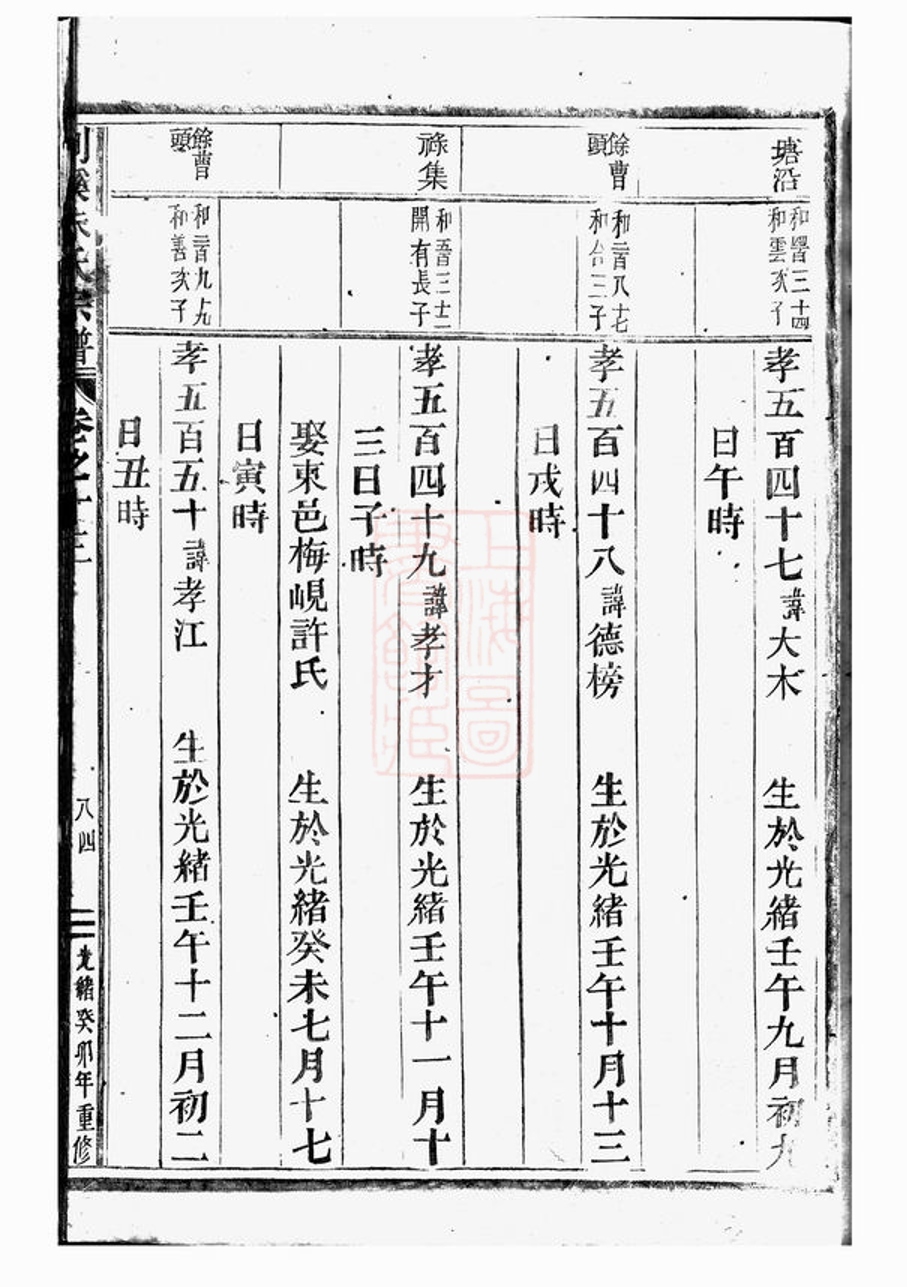 塘沿
和
和雲次子
孝五百四十七諱大木 生於光緒壬午九月初九
日午時
餘曹
頭
和三百八十七
和台三子
孝五百四十八諱德榜 生於光緒壬午十月十三
日戌時
祿集
和
開有長子
孝五百四十九諱孝才 生於光緒壬午十一月十
三日子時
娶東邑梅峴許氏 生於光緒癸未七月十七
日寅時
餘曹
頭
和三百九十九
和善次子
孝五百五十諱孝江 生於光緒壬午十二月初二
日丑時
氏宗譜 卷之十三
八四
光緒癸卯年重修
上海圖
書館藏